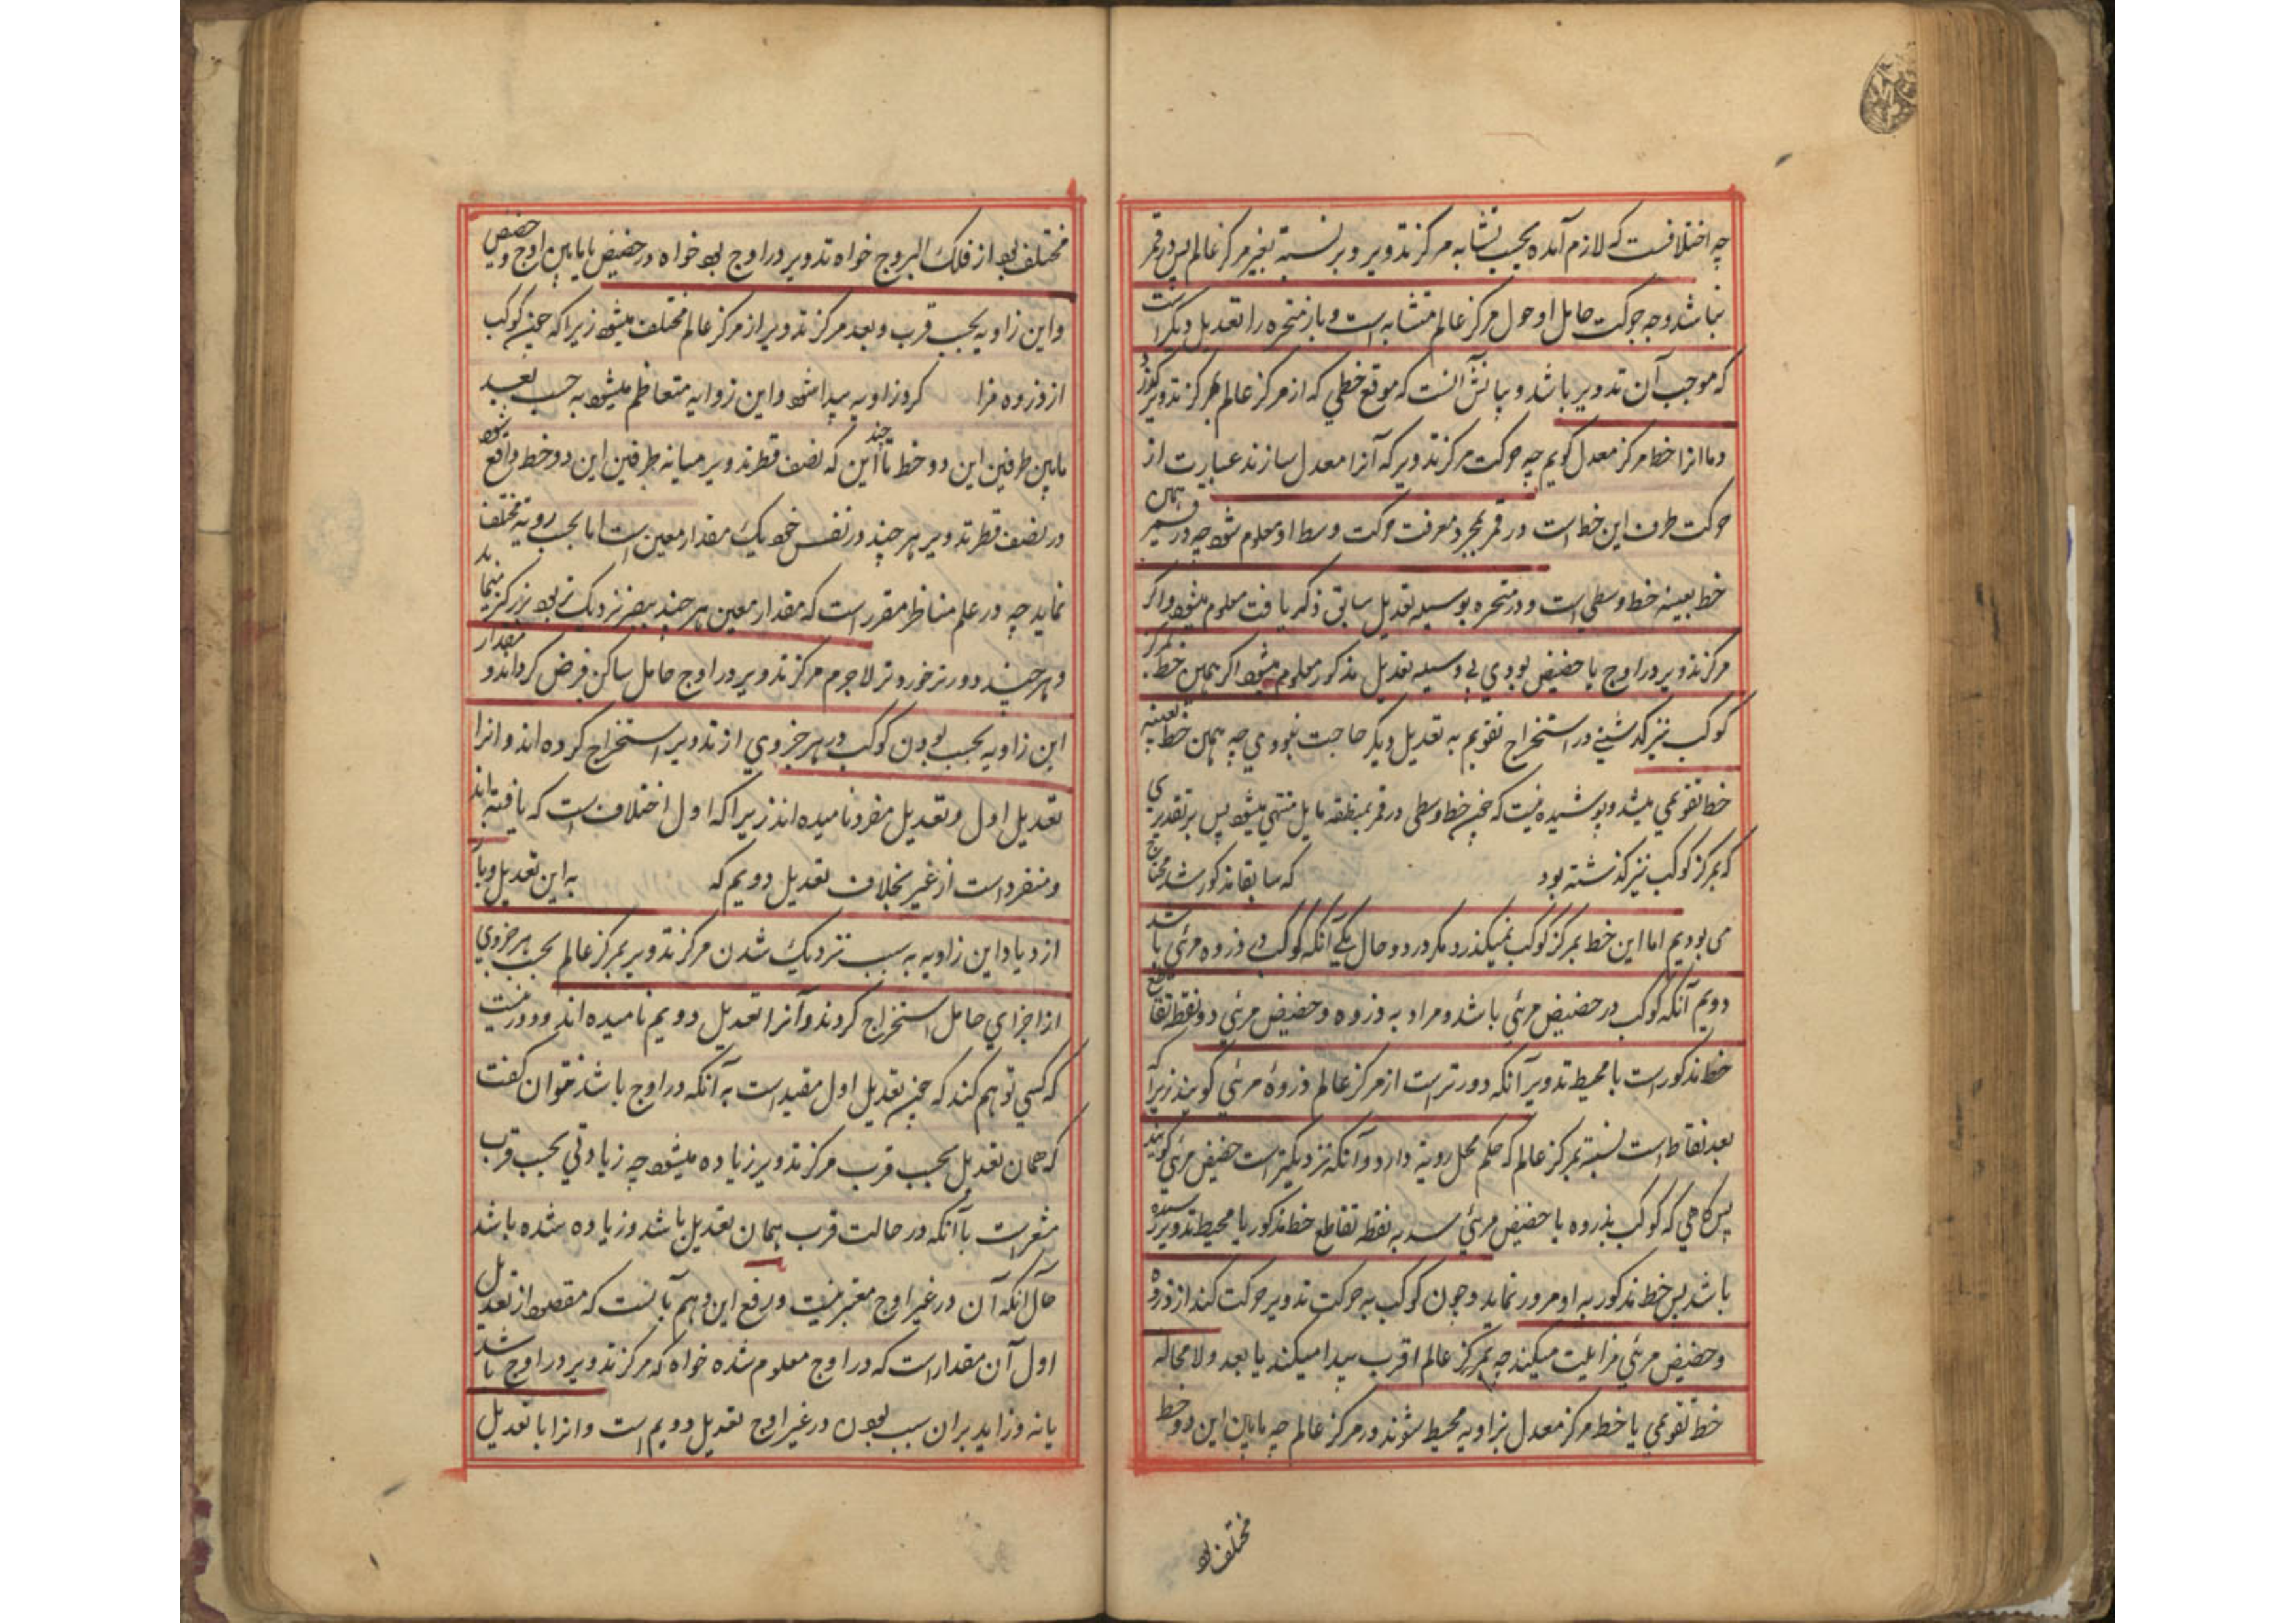 چه اختلافست که لازم آمده بحسب تشابه مرکز تدویر و بر نسبته بغیر مرکز عالم پس در قمر
نباشد وجه حرکت حامل او حول مرکز عالم متشابه است و باز متحیره را تعدیل دیگر است
که موجب آن تدویر باشد و بیانش آنست که موقع خطی که از مرکز عالم بمرکز تدویر گذرد
و ما انرا خط مرکز معدل گویم چه حرکت مرکز تدویر که آنرا معدل سازند عبارت از
حرکت طرف این خط است و در قمر بمجرد معرفت حرکت وسط او معلوم شود چه در قمر همین
خط بعینه خط وسطی است و در متحیره بوسیله تعدیل سابق ذکر یافت معلوم میشود و اگر
مرکز تدویر در اوج یا حضیض بودی بی وسیله تعدیل مذکور معلوم میشود اگر همین خط بمرکز
کوکب نیز گذشتی در استخراج تقویم به تعدیل دیگر حاجت نبودی چه همان خط بعینه
خط تقویمی میشد و پوشیده نیست که چون خط وسطی در قمر بمنطقه مایل منتهی میشود پس بر تقدیری
که بمرکز کوکب نیز گذشته بود که سابقا مذکور شد محتاج
می بودیم اما این خط بمرکز کوکب نمیگذرد مگر در دو حال یکی آنکه کوکب در ذروه مرئی باشد
دویم آنکه کوکب در حضیض مرئی باشد و مراد به ذروه و حضیض مرئی دو نقطه تقاطع
خط مذکور است با محیط تدویر آنکه دورتر است از مرکز عالم ذروهٔ مرئی گویند زیرا که
بعد نقاط است نسبته بمرکز عالم که حکم محل رویة دارد و آنکه نزدیکتر است حضیض مرئی گویند
پس گاهی که کوکب بذروه یا حضیض مرئی رسد به نقطه تقاطع خط مذکور با محیط تدویر رسیده
باشد پس خط مذکور به او مرور نماید و چون کوکب به حرکت تدویر حرکت کند از ذروه
و حضیض مرئی مزایلت میکند چه بمرکز عالم اقرب پیدا میکند یا بعد و لا محاله
خط تقویمی با خط مرکز معدل بزاویه محیط شوند در مرکز عالم چه مابین این دو خط
مختلف بود
مختلف بود از فلک البروج خواه تدویر در اوج بود خواه در حضیض یا مابین اوج و حضیض
و این زاویه بحسب قرب و بعد مرکز تدویر از مرکز عالم مختلف میشود زیرا که چون کوکب
از ذروه مزا کرو زاویه پیدا شود و این زوایه متعاظم میشود به حسب بعد
مابین طرفین این دو خط تا این که نصف قطر تدویر میانه طرفین این دو خط واقع شود
در نصف قطر تدویر هر چند در نفس خود یک مقدار معین است اما بحسب رویة مختلف
نماید چه در علم مناظر مقرر است که مقدار معین هر چند ببصر نزدیک تر بود بزرگتر مینماید
و هر چند دورتر خوردتر لاجرم مرکز تدویر در اوج حامل ساکن فرض کرده اند و مقدار
این زاویه بحسب بودن کوکب در هر جزوی از تدویر استخراج کرده اند و انرا
تعدیل اول و تعدیل مفرد نامیده اند زیرا که اول اختلاف است که یافته اند
و منفرد است از غیر بخلاف تعدیل دویم که به این تعدیل و باز
ازدیاد این زاویه به سبب نزدیک شدن مرکز تدویر بمرکز عالم بحسب هر جزوی
از اجزای حامل استخراج کردند و آنرا تعدیل دویم نامیده اند و دور نیست
که کسی توهم کند که چون تعدیل اول مقید است به آنکه در اوج باشد نتوان گفت
که همان تعدیل بحسب قرب مرکز تدویر زیاده میشود چه زیادتی بحسب قرب
مشعر است بآنکه در حالت قرب همان تعدیل باشد و زیاده شده باشد
حال آنکه آن در غیر اوج معتبر نیست و رفع این وهم بآنست که مقصود از تعدیل
اول آن مقدار است که در اوج معلوم شده خواه که مرکز تدویر در اوج باشد
یا نه و زاید بران سبب بودن در غیر اوج تعدیل دویم است و انرا با تعدیل